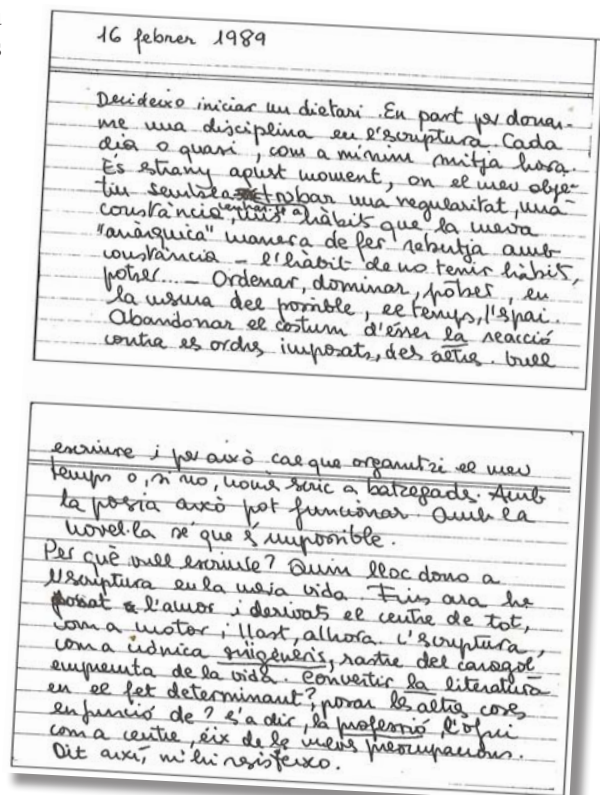 16 febrer 1989
Decideixo iniciar un dietari. En part per donar-
me una disciplina en l'escriptura. Cada
dia o quasi, com a mínim mitja hora.
És estrany aquest moment, on el meu obje-
tiu sembla trobar una regularitat, una
constància, uns hàbits que la meva
"anàrquica" manera de fer rebutja amb
constància – l'hàbit de no tenir hàbits,
potser... – Ordenar, dominar, potser, en
la mesura del possible, el temps, l'espai.
Abandonar el costum d'ésser la reacció
contra es ordres imposats, dels altres. Vull
escriure i per això cal que organitzi el meu
temps o, si no, només escric a batzegades. Amb
la poesia això pot funcionar. Amb la
novel·la sé que és impossible.
Per què vull escriure? Quin lloc dono a
l'escriptura en la meva vida. Fins ara he
posat a l'amor i derivats el centre de tot,
com a motor i llast, alhora. L'escriptura,
com a crònica suigèneris, rastre del caragol
empremta de la vida. Convertir la literatura
en el fet determinant?, posar les altres coses
en funció de? és a dir, la professió, l'ofici
com a centre, eix de les meves preocupacions.
Dit així, m'hi resisteixo.